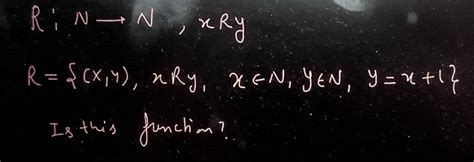 R: N → N , xRy
R = {(x,y), xRy, x∈N, y∈N, y = x+1}
Is this function?